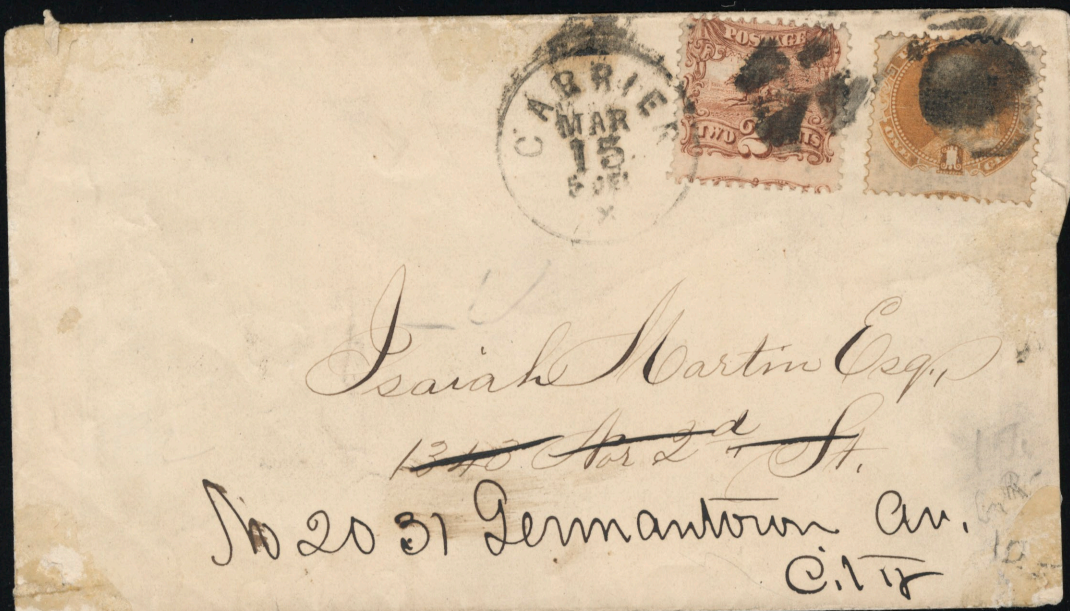 CARRIER
MAR
15
POSTAGE
TWO 2 CENTS
ONE 1
Isaiah Martin Esq.,
1343 Nor 2d St.
No 2031 Germantown Av.
City